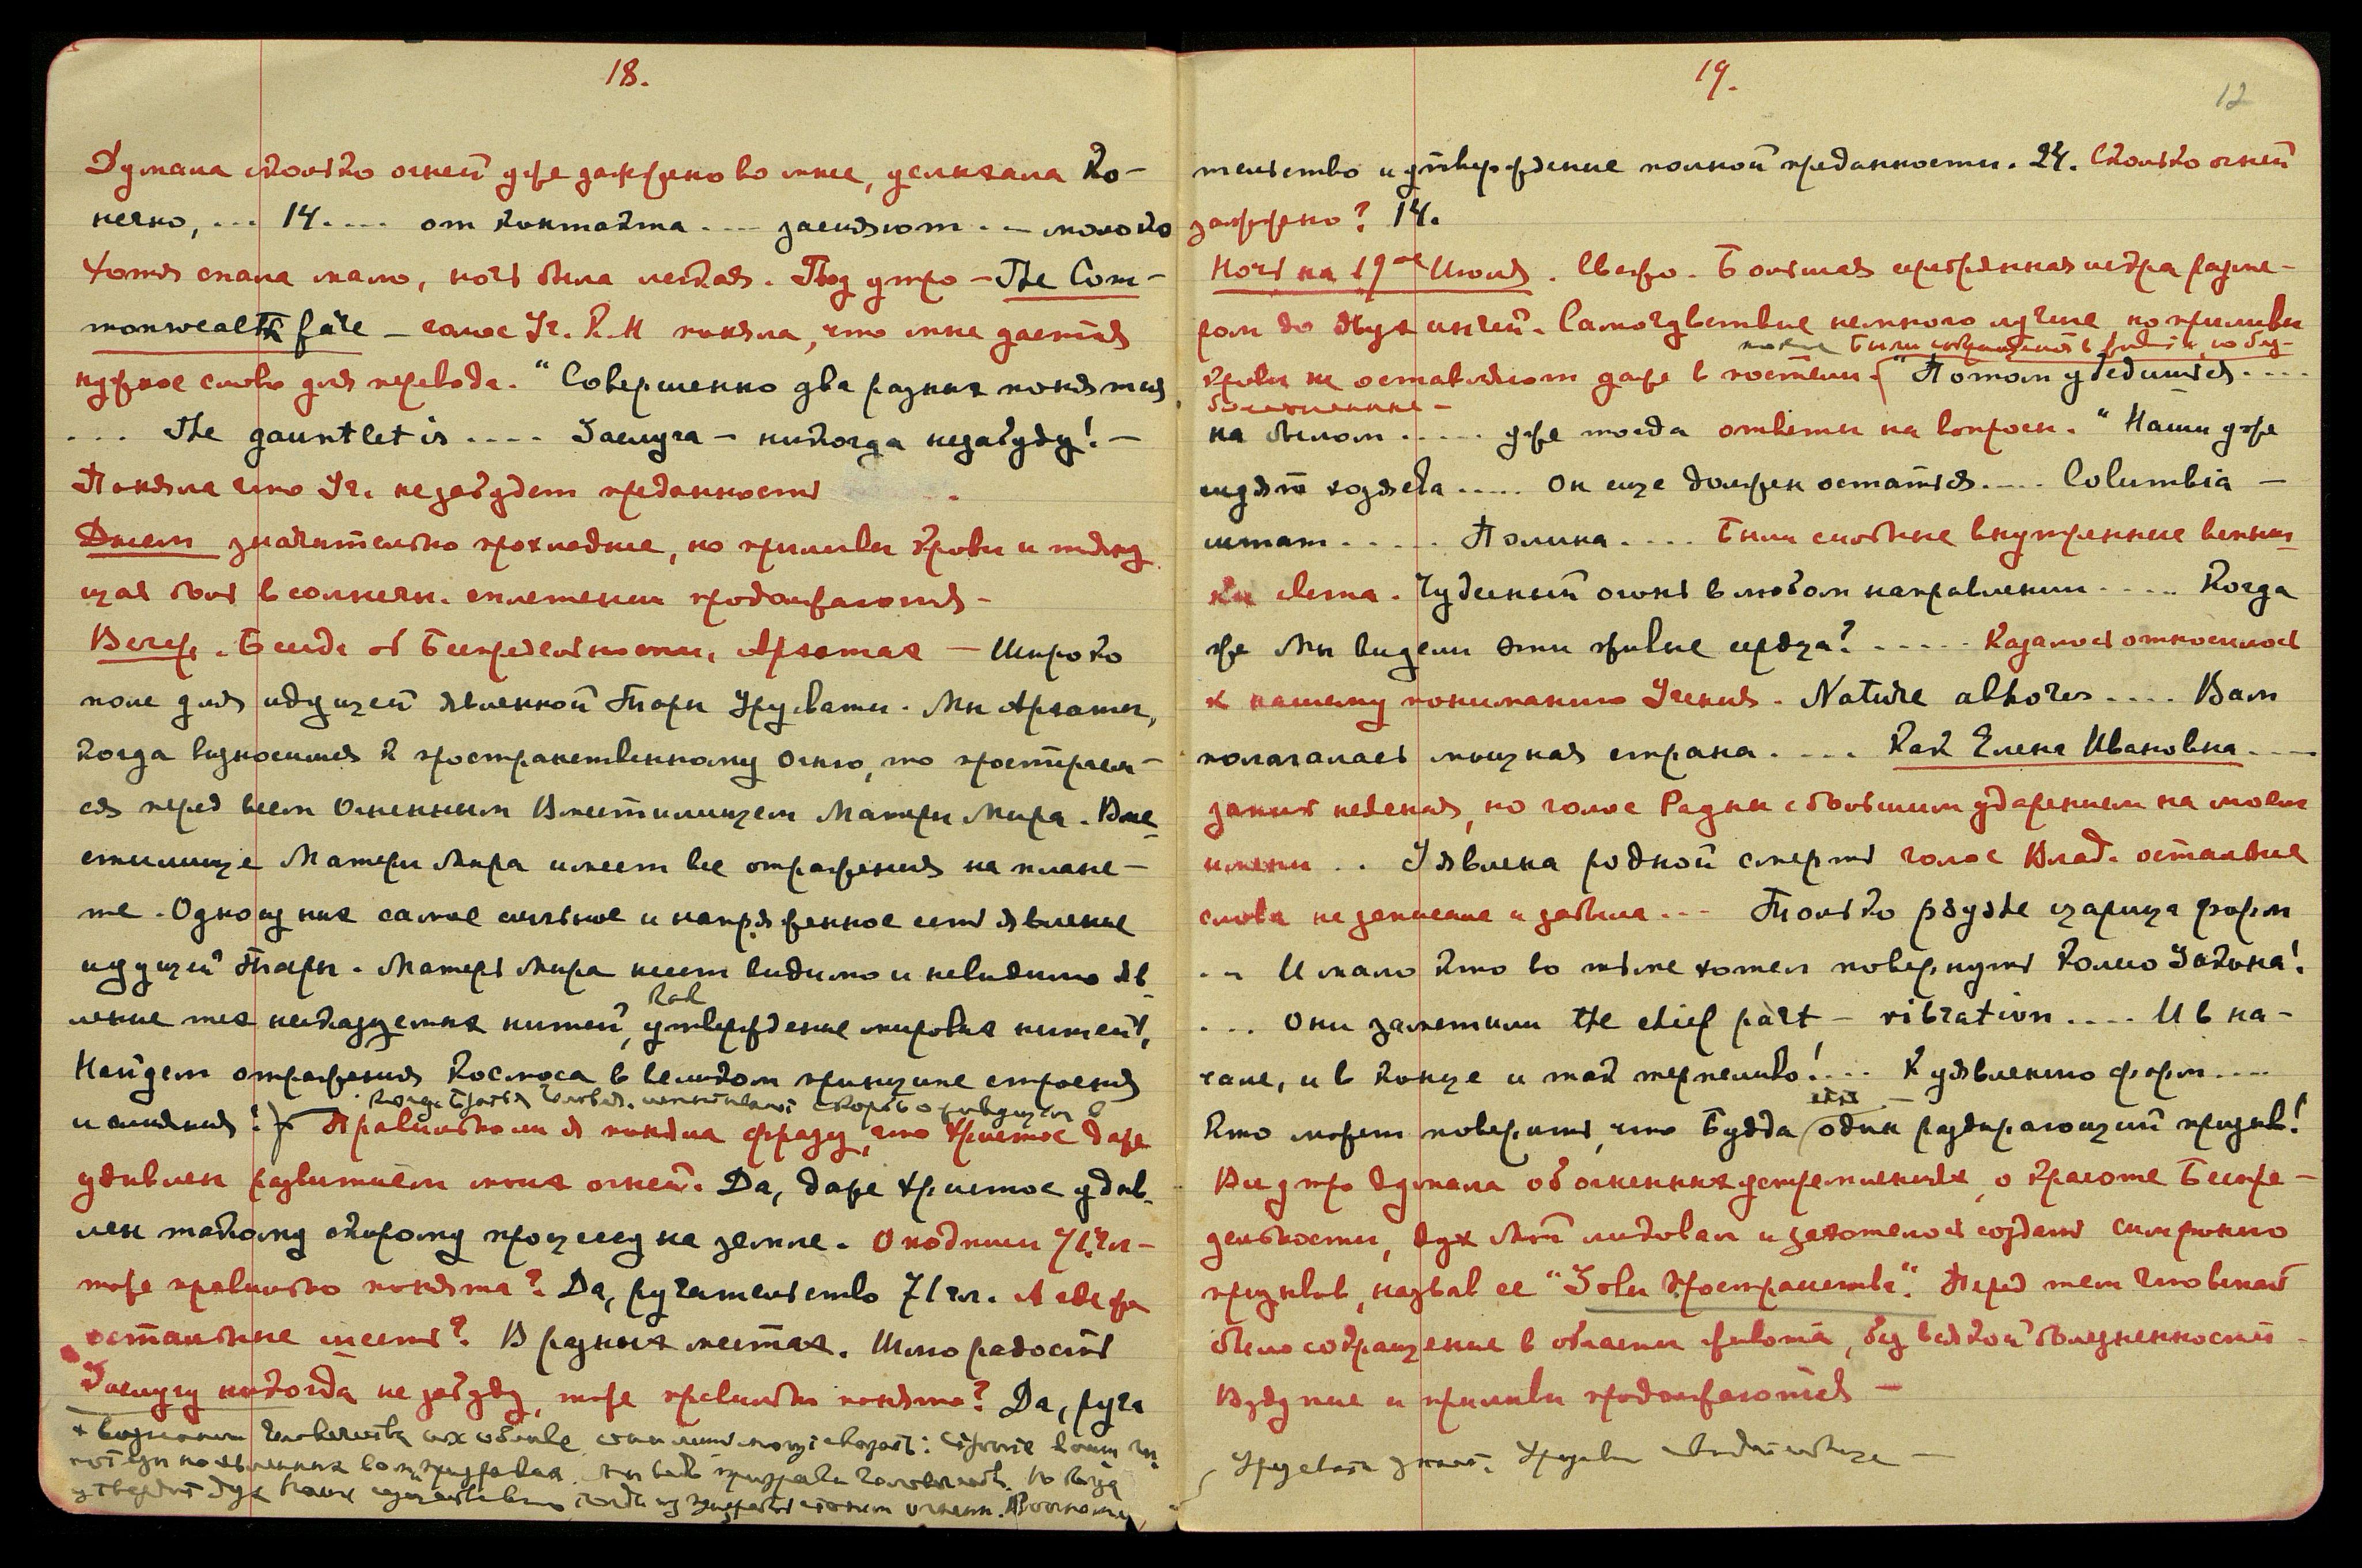 18.
Думала сколько огней уже зажжено во мне, услыхала Ко-
нечно, ... 14.... от контакта .... засияют ... молоко
Хотя спала мало, ночь была легкая. Под утро – The Com-
monwealth fate – голос Уч. К.М поняла, что мне дается
нужное слово для перевода. "Совершенно два разных понятия
... The gauntlet is .... Заслуга – никогда не забуду! –
Поняла что Уч. не забудет преданности.
Днем значительно прохладнее, но приливы крови и тянущ
щая боль в солнечн. сплетении продолжаются –
Вечер. Беседа о Беспредельности. Архатах – Широко
поле для идущей явленной Тары Урусвати. Мы Архаты,
когда возносимся к пространственному Огню, то простираем-
ся перед всем Огненным Вместилищем Матери Мира. Вме-
стилище Матери Мира имеет все отражения на плане-
те. Одно из них самое сильное и напряженное есть явление
идущей Тары. Матерь Мира шлет видимо и невидимо яв-
как
ление тех несказуемых нитей, утверждение мировых нитей!
Найдем отражения Космоса в великом принципе строения
и слияния!
Правильно ли я поняла фразу, что Христос даже
удивлен развитием моих огней. Да, даже Христос удив-
лен такому скорому процессу на земле. О коднии 71 чл–
тоже правильно понята? Да, ручательство 71 чл. А где же
остальные шесть? В разных местах. Шлю радость
Заслугу никогда не забуду, тоже правильно понято? Да, руча
19.
12
тельство и утверждение полной преданности. 24. Сколько огней
зажжено? 14.
Ночь на 19ое Июля. Свежо. Большая серебряная искра разме-
ром до двух инчей. Самочувствие немного лучше, но приливы
крови не оставляют даже в постели. "Потом убедишься ....
болезненные –
на белом ..... уже тогда ответы на вопросы. "Наши уже
ждут хозяева ..... Он еще должен остаться .... Columbia –
штат ..... Полина .... Были сильные внутренние вспыш-
ки света. Чудесный огонь в любом направлении ..... Когда
же Мы видели эти живые сердца? ..... Казалось относилось
к нашему пониманию Учения. Nature abhors .... Вам
полагалась мощная страна .... Как Елена Ивановна ....
запись неясная, но голос Радны с большим ударением на моем
имени .. Уявлена родной смерть голос Влад. остальные
слова не записала и забыла ... Только царица форм
... И мало кто во тьме хотел повернуть колесо Закона!
... Они заметили the chief part – vibration .... И в на-
чале, и в конце и так терпеливо! .... К уявлению форм ....
Кто может поверить, что Будда один раздирающий призыв!
Все утро думала об огненных устремлениях, о красоте Беспре-
дельности, дух мой ликовал и захотелось создать симфонию
призывов, назвав ее "Зовы Пространства". Перед тем что встать
было сокращение в области живота, без всякой болезненности –
Вздутие и приливы продолжаются –